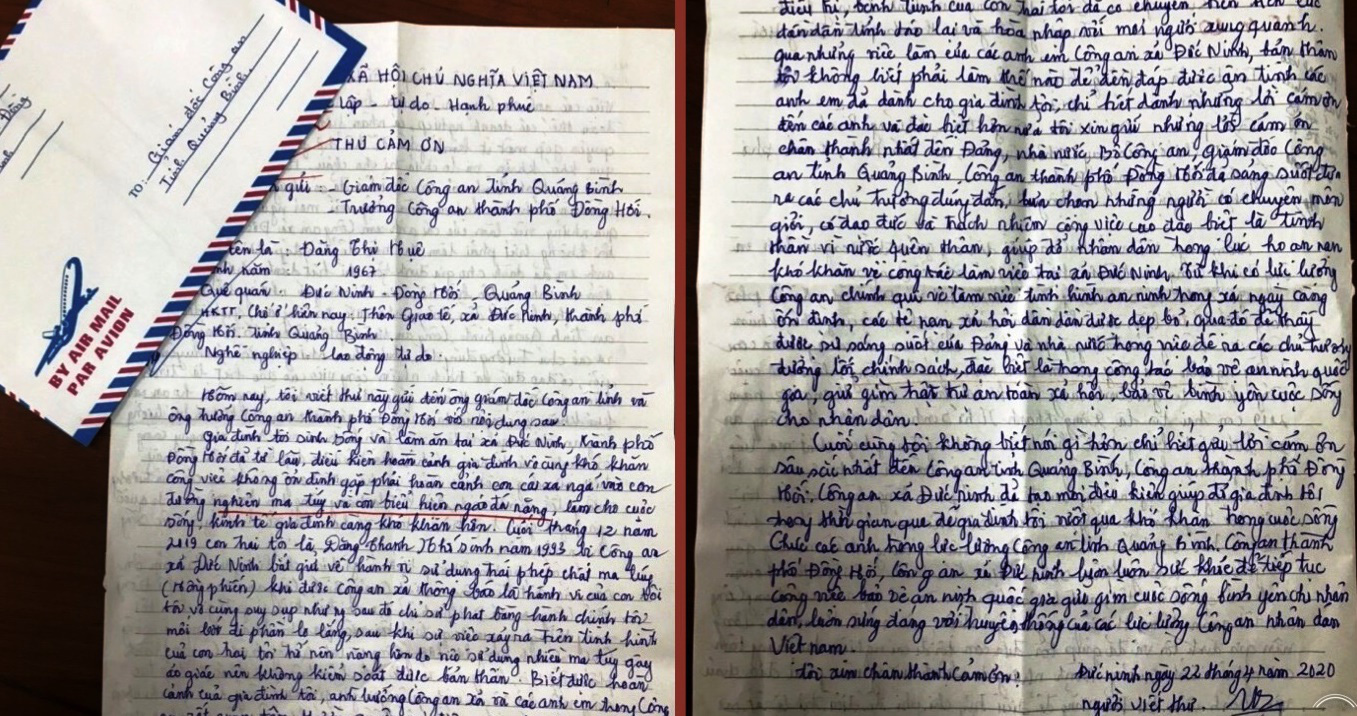 Đồng
TO: Giám đốc Công an
Tỉnh Quảng Bình
BY AIR MAIL
PAR AVION
XÃ HỘI CHỦ NGHĨA VIỆT NAM
lập - tự do - Hạnh phúc
THƯ CẢM ƠN
gửi: - Giám đốc Công an tỉnh Quảng Bình
- Trưởng Công an thành phố Đồng Hới.
tên là: Đặng Thị Huệ
năm 1967
Quê quán Đức Ninh - Đồng Hới Quảng Bình
HKTT, Chỗ ở hiện nay: Thôn Giao tế, xã Đức Ninh, thành phố
Đồng Hới. tỉnh Quảng Bình
Nghề nghiệp lao động tự do.
Hôm nay, tôi viết thư này gửi đến ông giám đốc Công an tỉnh và
ông trưởng Công an thành phố Đồng Hới với nội dung sau:
Gia đình tôi sinh sống và làm ăn tại xã Đức Ninh, thành phố
Đồng Hới đã từ lâu, điều kiện hoàn cảnh gia đình vô cùng khó khăn
công việc không ổn định gặp phải hoàn cảnh con cái sa ngã vào con
đường nghiện ma túy và còn biểu hiện ngáo đá nặng, làm cho cuộc
sống, kinh tế gia đình càng khó khăn hơn. Cuối tháng 12 năm
2019 con trai tôi là, Đặng Thanh Nhí sinh năm 1993 bị Công an
xã Đức Ninh bắt giữ về hành vi sử dụng trái phép chất ma túy
(Hồng phiến) khi được công an xã thông báo là hành vi của con tôi
tôi vô cùng suy sụp nhưng sau đó chỉ xử phạt bằng hành chính tôi
mới bớt đi phần lo lắng, sau khi sự việc xảy ra trên tình hình
của con trai tôi trở nên nặng hơn do nó sử dụng nhiều ma túy gây
ảo giác nên không kiểm soát được bản thân. Biết được hoàn
cảnh của gia đình tôi, anh trưởng Công an xã và các anh em trong Công
điều trị, bệnh tình của con trai tôi đã có chuyển biến tích cực
dần dần tỉnh táo lại và hòa nhập với mọi người xung quanh.
qua những việc làm của các anh em Công an xã Đức Ninh, bản thân
tôi không biết phải làm thế nào để đền đáp được ân tình các
anh em đã dành cho gia đình tôi, chỉ biết dành những lời cảm ơn
đến các anh và đặc biệt hơn nữa tôi xin gửi những lời cảm ơn
chân thành nhất đến Đảng, nhà nước, Bộ Công an, giám đốc Công
an tỉnh Quảng Bình, Công an thành phố Đồng Hới đã sáng suốt đưa
ra các chủ trương đúng đắn, lựa chọn những người có chuyên môn
giỏi, có đạo đức và trách nhiệm công việc cao đặc biệt là tinh
thần vì nước quên thân, giúp đỡ nhân dân trong lúc hoạn nạn
khó khăn về công tác làm việc tại xã Đức Ninh. Từ khi có lực lượng
Công an chính qui về làm việc tình hình an ninh trong xã ngày càng
ổn định, các tệ nạn xã hội dần dần được dẹp bỏ, qua đó để thấy
được sự sáng suốt của Đảng và nhà nước trong việc đề ra các chủ trương
đường lối chính sách, đặc biệt là trong công tác bảo vệ an ninh quốc
gia, giữ gìn trật tự an toàn xã hội, bảo vệ bình yên cuộc sống
cho nhân dân.
Cuối cùng tôi không biết nói gì hơn chỉ biết gửi lời cảm ơn
sâu sắc nhất đến Công an tỉnh Quảng Bình, Công an thành phố Đồng
Hới, Công an xã Đức Ninh đã tạo mọi điều kiện giúp đỡ gia đình tôi
trong thời gian qua để gia đình tôi vượt qua khó khăn trong cuộc sống
Chúc các anh trong lực lượng Công an tỉnh Quảng Bình. Công an thành
phố Đồng Hới, Công an xã Đức Ninh luôn luôn sức khỏe để tiếp tục
công việc bảo vệ an ninh quốc gia giữ gìn cuộc sống bình yên cho nhân
dân, luôn xứng đáng với truyền thống của các lực lượng Công an nhân dân
Việt nam.
Tôi xin chân thành Cảm ơn! Đức ninh ngày 22 tháng 4 năm 2020
người viết thư.